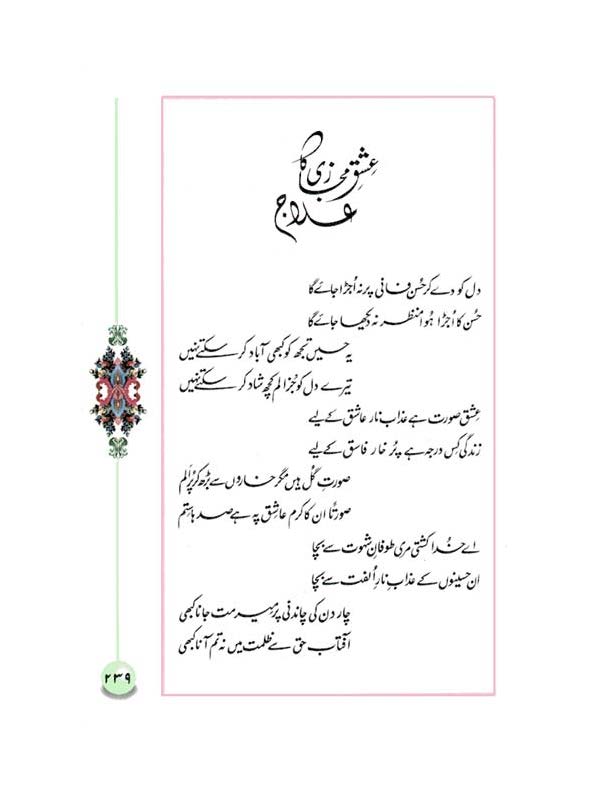 عشقِ مجازی کا
علاج
دل کو دے کر حُسنِ فانی پر نہ اُجڑا جائے گا
حُسن کا اُجڑا ہُوا منظر نہ دیکھا جائے گا
یہ حسیں تجھ کو کبھی آباد کر سکتے نہیں
تیرے دل کو جُز الم کچھ شاد کر سکتے نہیں
عشقِ صورت ہے عذابِ نار عاشق کے لیے
زندگی کس درجہ ہے پُر خار فاسق کے لیے
صورتِ گُل ہیں مگر خاروں سے بڑھ کر پُر اَلم
صورتًا ان کا کرم عاشق پہ ہے صد ہا ستم
اے خُدا کشتی مری طوفانِ شہوت سے بچا
ان حسینوں کے عذابِ نارِ اُلفت سے بچا
چار دن کی چاندنی پر میر مت جانا کبھی
آفتابِ حق سے ظلمت میں نہ تم آنا کبھی
۲۳۹